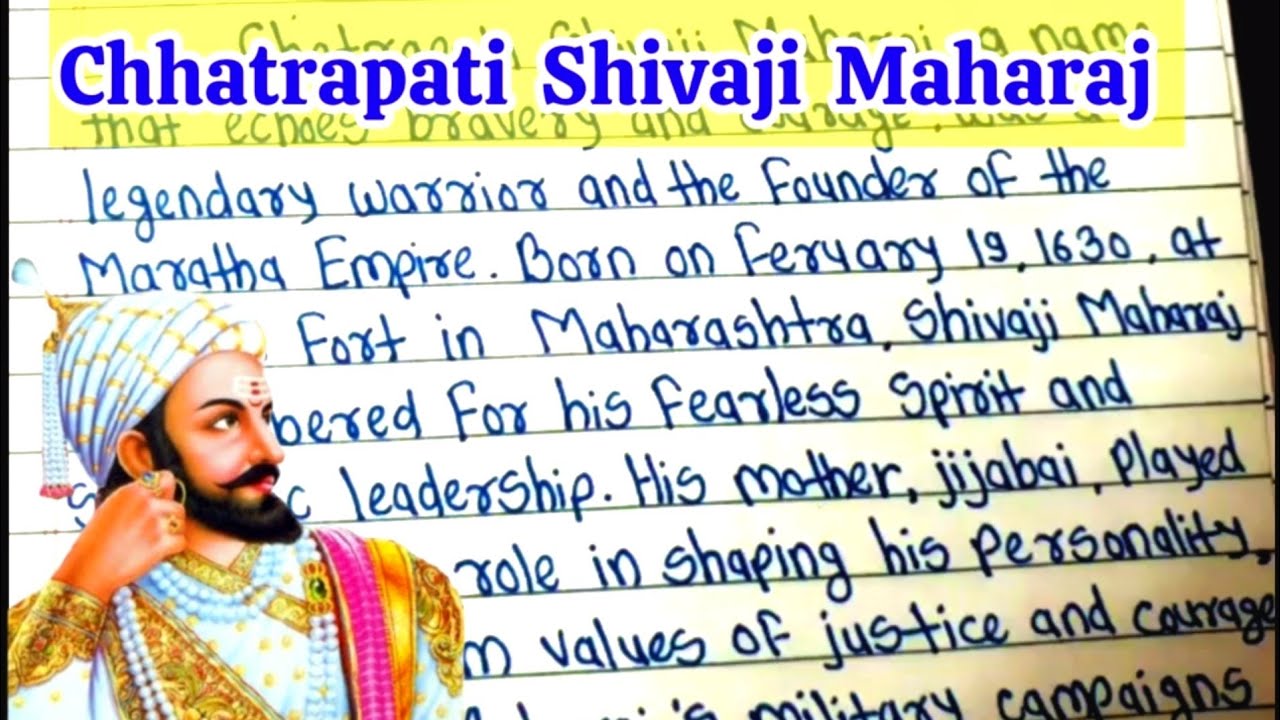 Chhatrapati Shivaji Maharaj
Chatrapati Shivaji Maharaj, a name
that echoes bravery and courage, was a
legendary warrior and the Founder of the
Maratha Empire. Born on Feruary 19, 1630, at
Fort in Maharashtra, Shivaji Maharaj
bered For his Fearless Spirit and
c leadership. His mother, jijabai, played
role in shaping his personality,
m values of justice and courage
's military campaigns